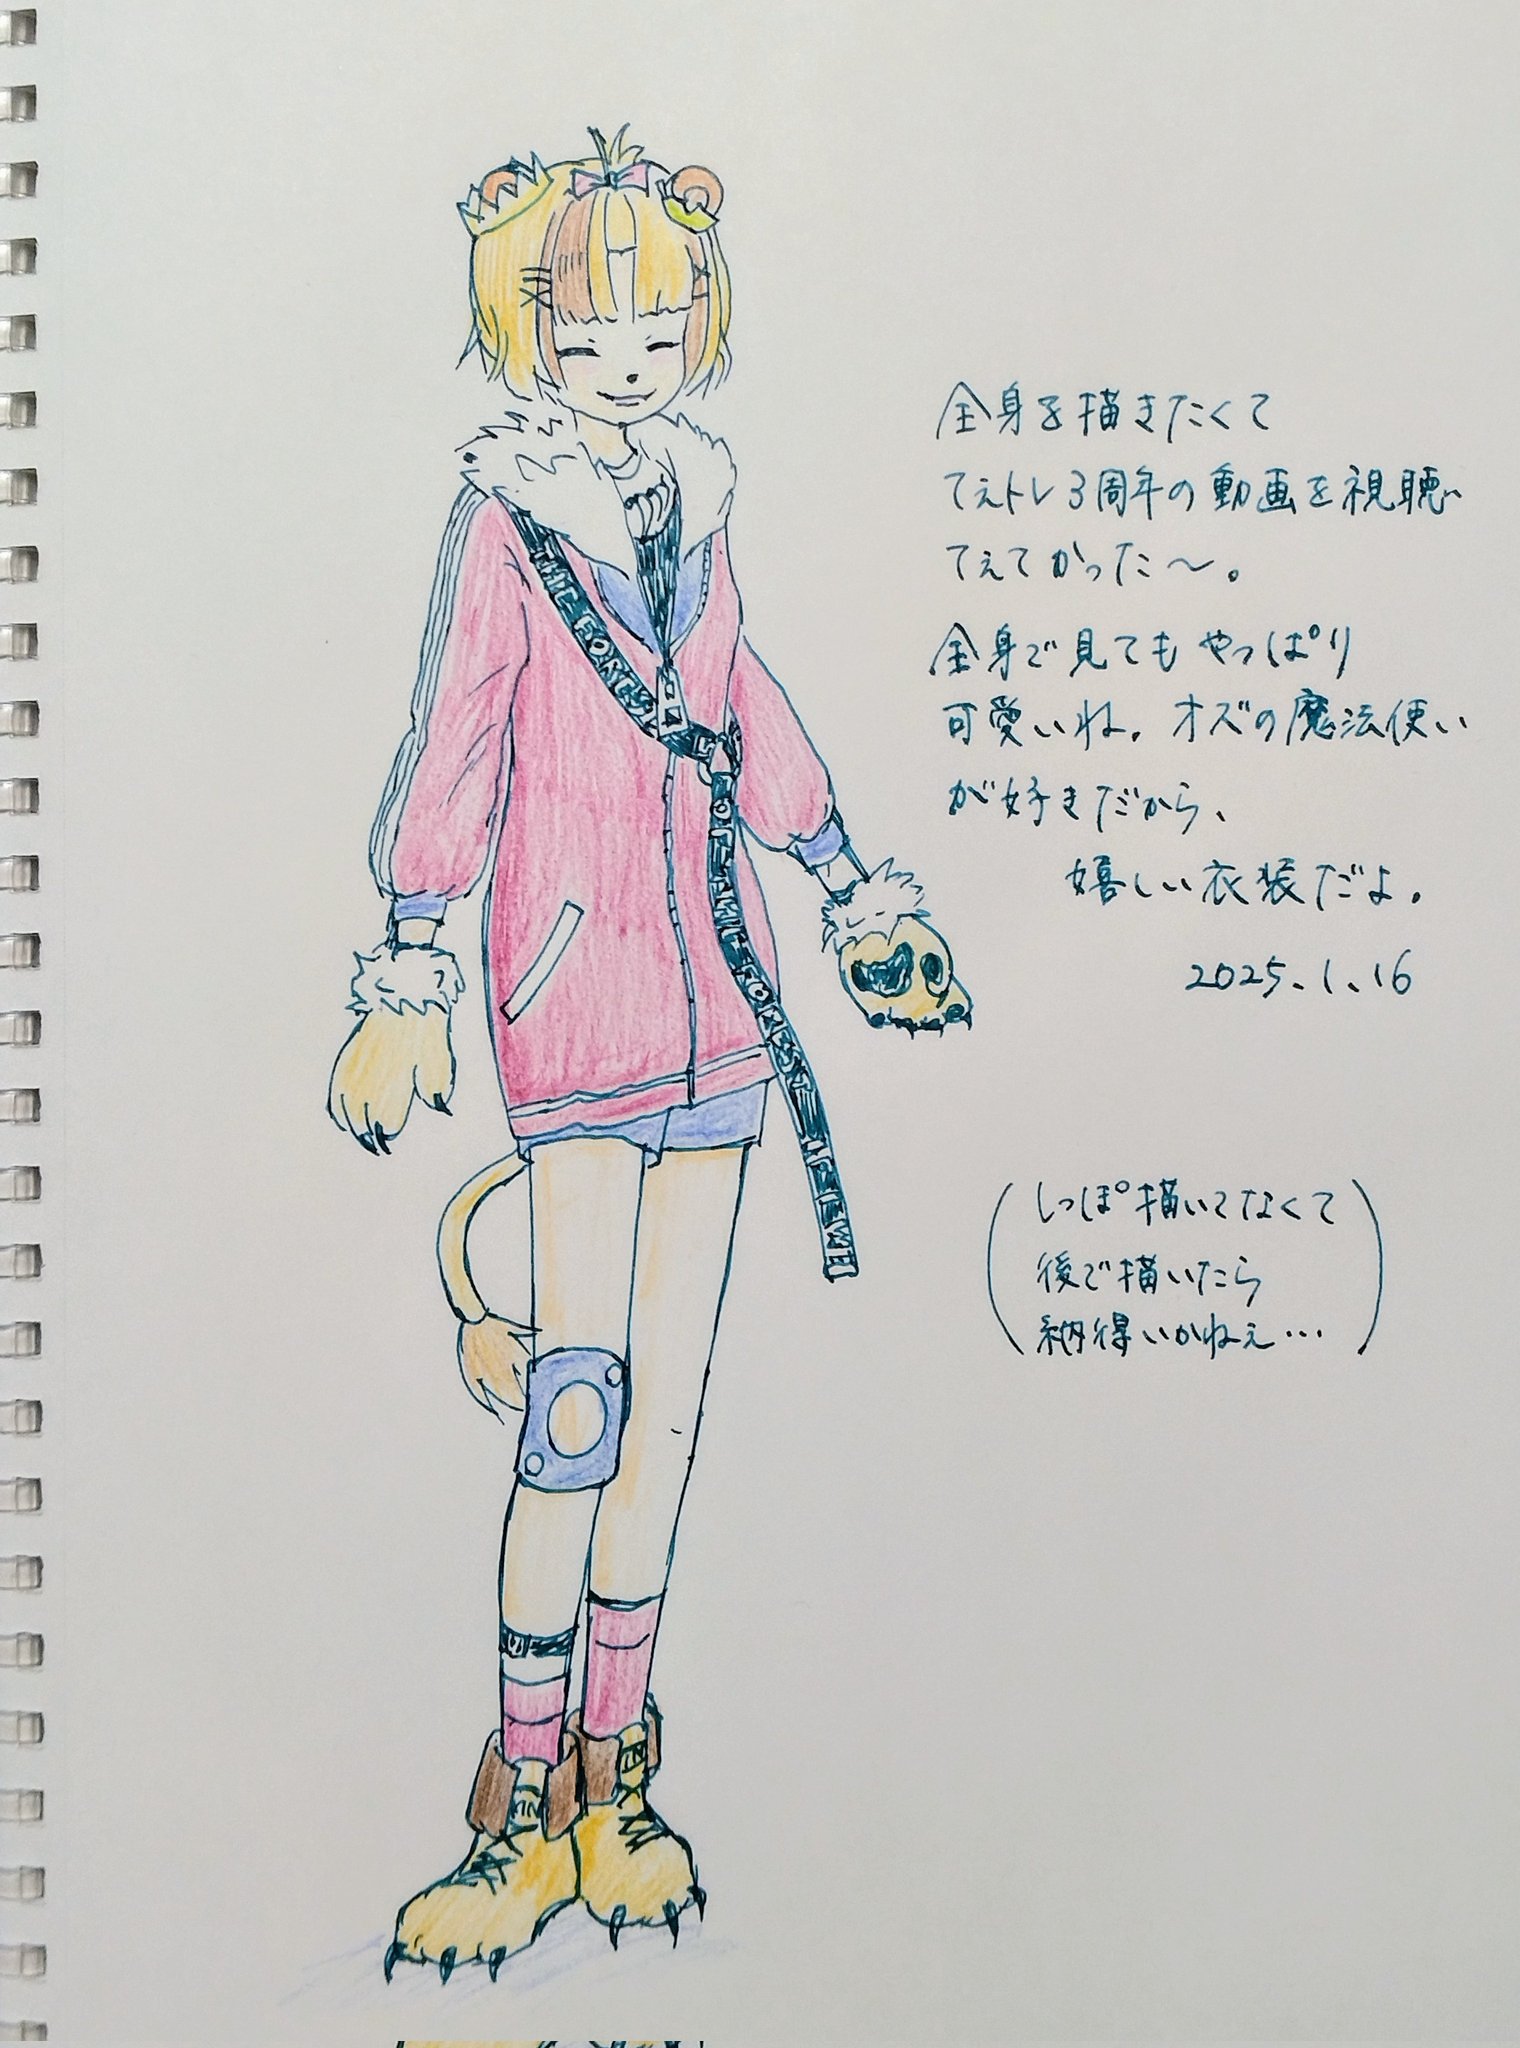 全身を描きたくて
てぇトレ3周年の動画を視聴
てぇてかった〜。
全身で見てもやっぱり
可愛いね。オズの魔法使い
が好きだから、
嬉しい衣装だよ。
2025.1.16
(しっぽ描いてなくて
後で描いたら
納得いかねぇ…)